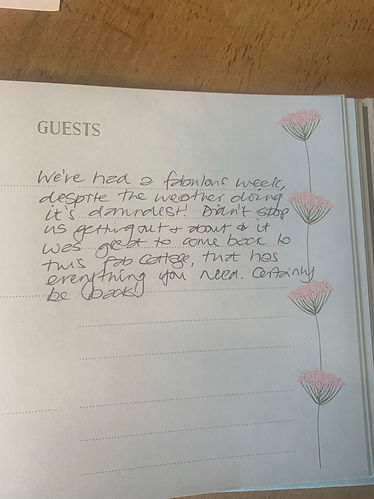 GUESTS
We've had a fabulous week,
despite the weather doing
it's damndest! Didn't stop
us getting out + about & it
was great to come back to
this fab cottage, that has
everything you need. Certainly
be back!